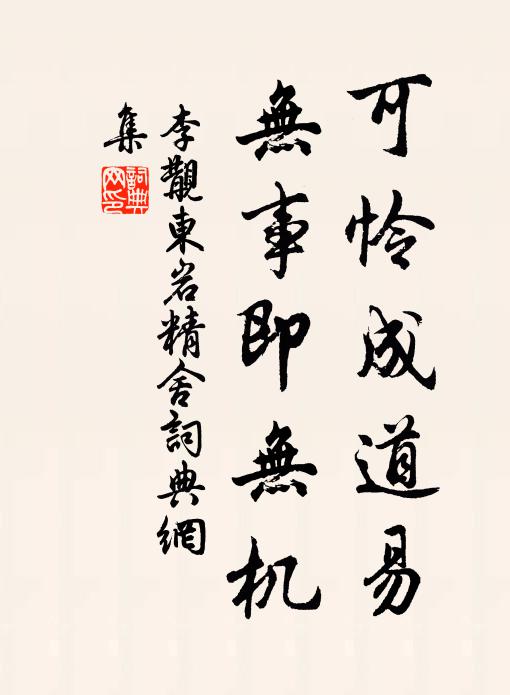 可怜成道易
無事即無机
李觀東岩精舍詞典網
集
詞典
网印